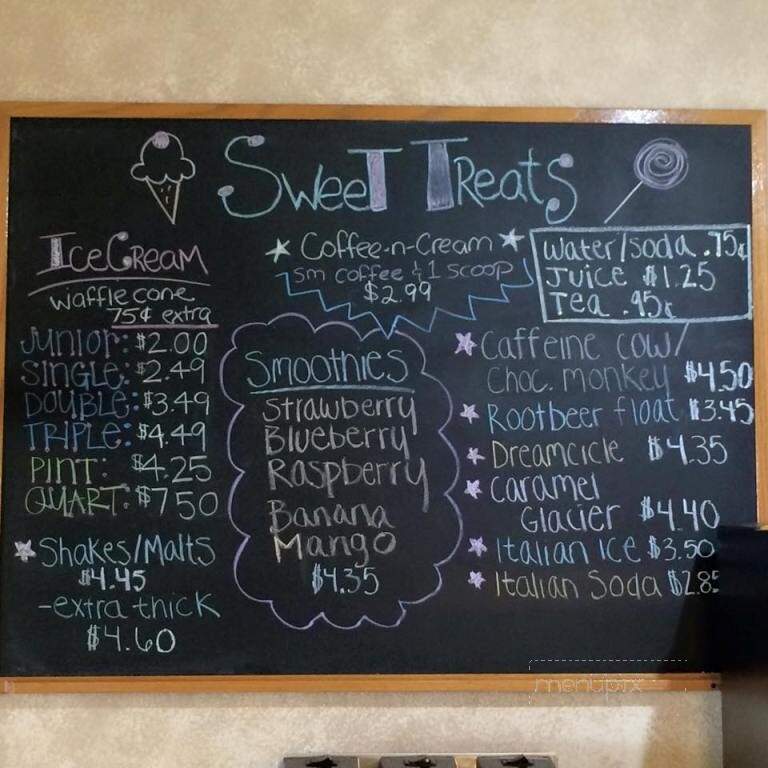 Sweet Treats
Ice Cream
waffle cone
75¢ extra
Junior: $2.00
Single: $2.49
Double: $3.49
Triple: $4.49
Pint: $4.25
Quart: $7.50
Shakes/Malts
$4.45
-extra thick
$4.60
Coffee-n-Cream
sm coffee & 1 scoop
$2.99
Smoothies
Strawberry
Blueberry
Raspberry
Banana
Mango
$4.35
Water/soda .75¢
Juice $1.25
Tea .95¢
Caffeine cow/
Choc. monkey $4.50
Rootbeer float $3.45
Dreamcicle $4.35
Caramel
Glacier $4.40
Italian Ice $3.50
Italian Soda $2.85
menupix